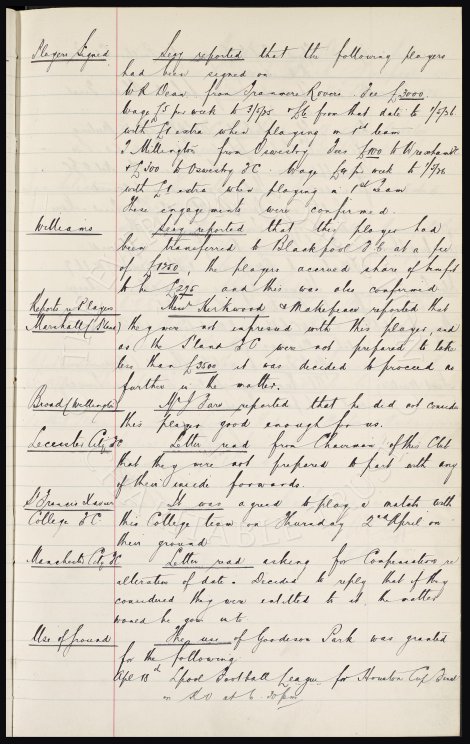 Players Signed Secy reported that the following players
had been signed on
W R Dean from Tranmere Rovers. Fee £3000.
Wage £5 per week to 3/5/25 & £6 from that date to 1/5/26
with £1 extra when playing in 1st team
T Millington from Oswestry. Fees £100 to Wrexham
& £300 to Oswestry FC. Wage £4 p. week to 1/5/26
with £1 extra when playing in 1st team
These engagements were confirmed.
Williams Secy reported that this player had
been transferred to Blackpool F.C at a fee
of £1750, the players accrued share of benefit
to be £275 and this was also confirmed
Reports re Players Messrs Kirkwood & Makepeace reported that
Marshall (S'land) they were not impressed with this player, and
as the S'land FC were not prepared to take
less than £3500 it was decided to proceed no
further in the matter.
Broad (Wellington) Mr J Fare reported that he did not consider
this player good enough for us.
Leicester City FC Letter read from Chairman of this Club
that they were not prepared to part with any
of their inside forwards.
St Francis Xavier It was agreed to play a match with
College F.C this College team on Thursday 2nd April on
their ground
Manchester City FC Letter read asking for Compensation re
alteration of date. Decided to reply that if they
considered they were entitled to it the matter
would be gone into
Use of Ground The use of Goodison Park was granted
for the following
Apl 18 L'pool Football League for Houston Cup
at 6.30pm